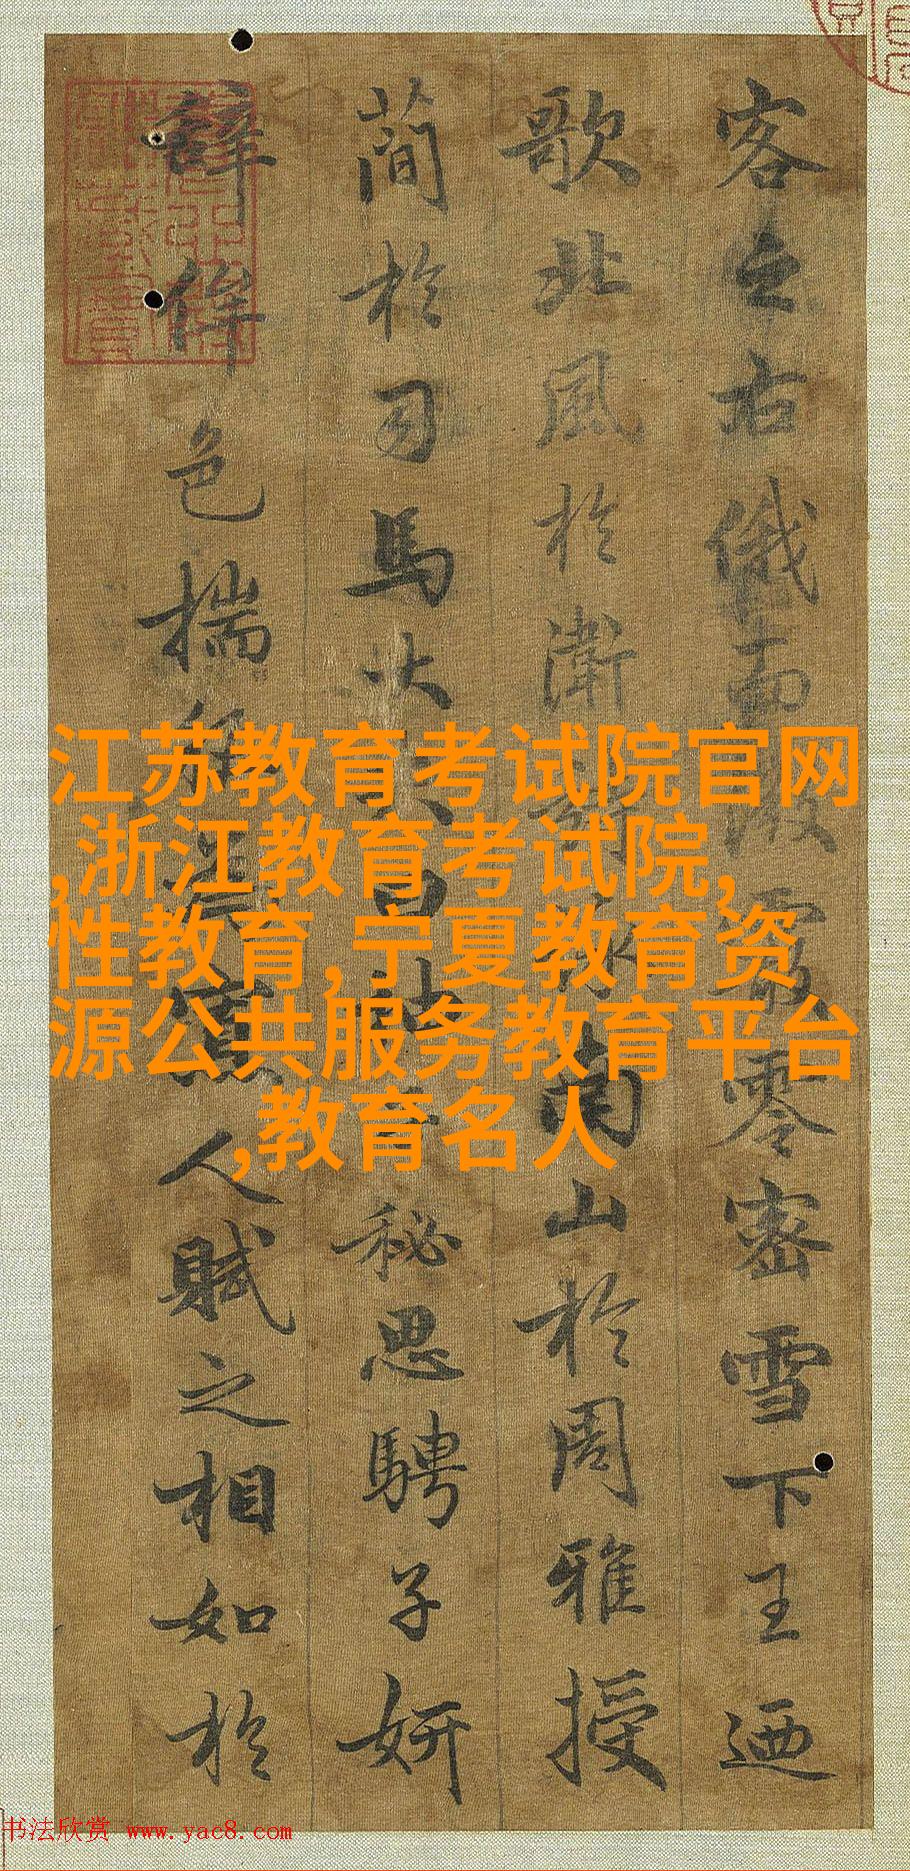 客之右俄而微霰零密雪下王迺
歌北風於衛詩詠南山於周雅授
簡於司馬大夫曰抽子秘思騁子妍
辭侔色揣稱為寡人賦之相如於
江苏教育考试院官网
,浙江教育考试院,
性教育,宁夏教育资
源公共服务教育平台
,教育名人
书法欣赏 www.yac8.com